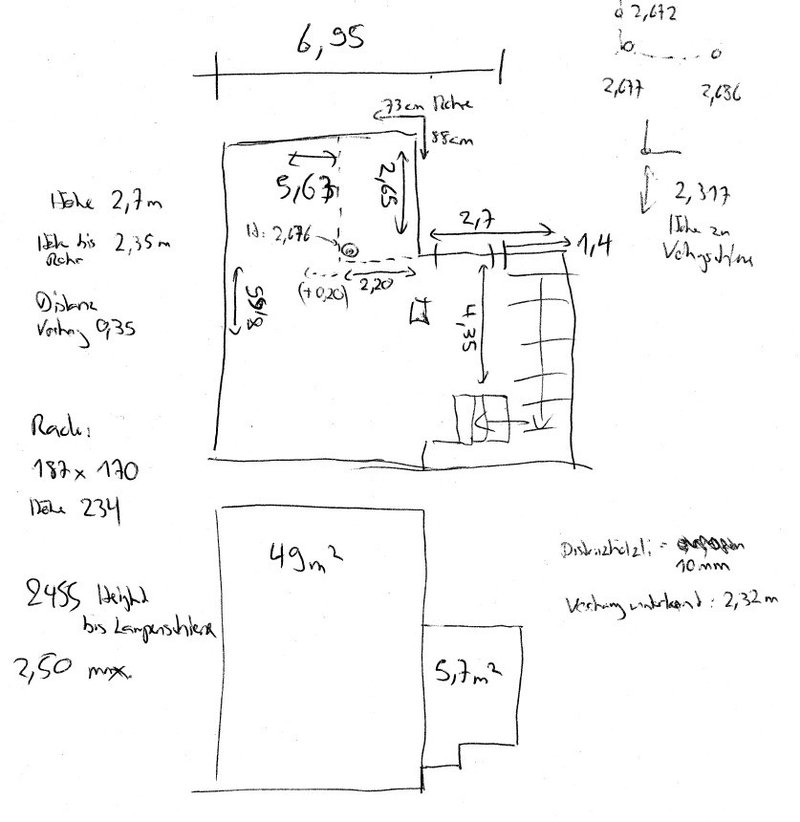 6,95
2,672
2,677
2,636
73cm Rohre
88cm
5,63
2,65
Höhe 2,7m
Höhe bis 2,35m
Rohre
H: 2,676
2,7
1,4
2,317
Höhe zu
(+0,20)
2,20
8,65
4,35
Distanz
Vorhang 0,35
Rack:
187 x 170
Höhe 234
49m²
2455 Height
bis Lampenschiene
2,50 max.
5,7m²
10mm
Vorhang unterkant : 2,32m